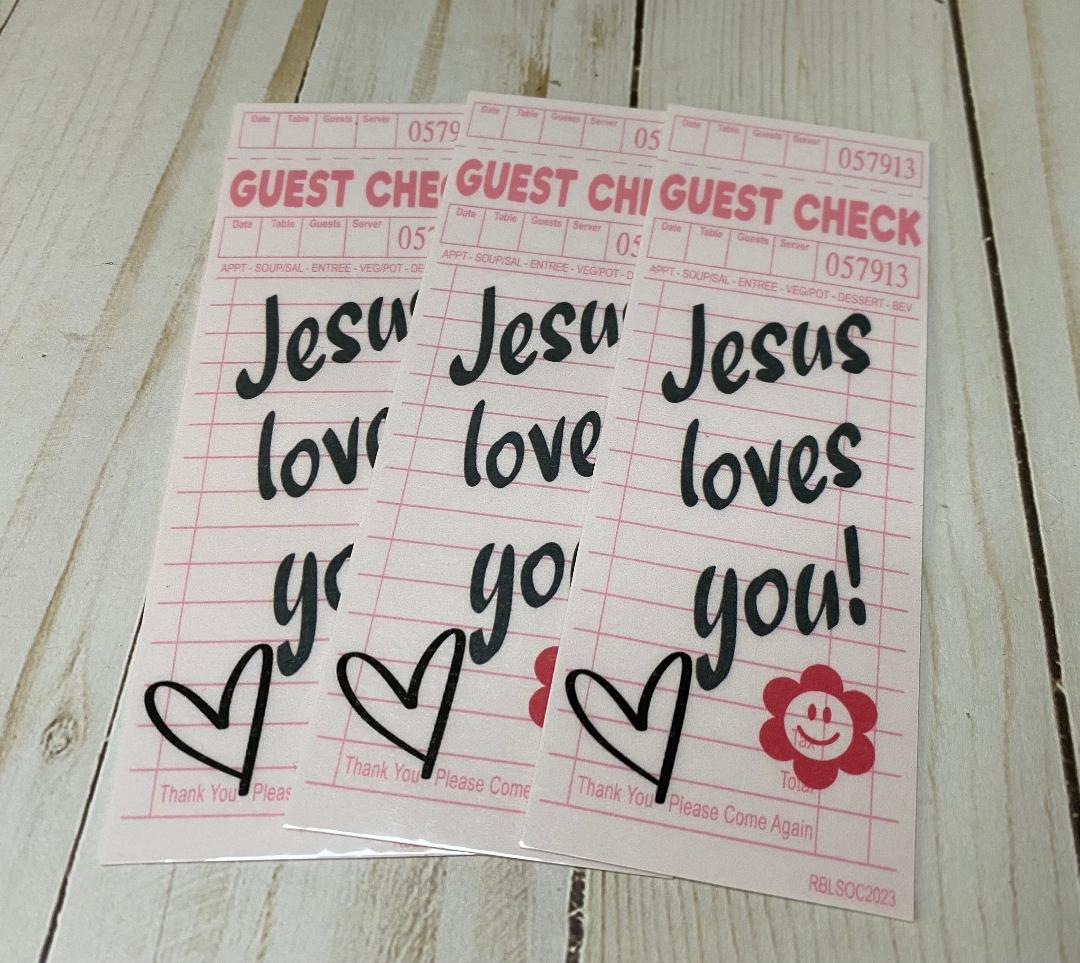 Date Table Guests Server 0579
GUEST CHEC
Date Table Guests Server 05
APPT - SOUP/SAL - ENTREE - VEG/POT - DE
Jesu
love
yo
Thank You Pleas
Date Table Guests Server 05
GUEST CHE
Date Table Guests Server 05
APPT - SOUP/SAL - ENTREE - VEG/POT - D
Jesu
love
yo
Thank You Please Come
Date Table Guests Server 057913
GUEST CHECK
Date Table Guests Server 057913
APPT - SOUP/SAL - ENTREE - VEG/POT - DESSERT - BEV
Jesus
loves
you!
Tax
Total
Thank You Please Come Again
RBLSOC2023